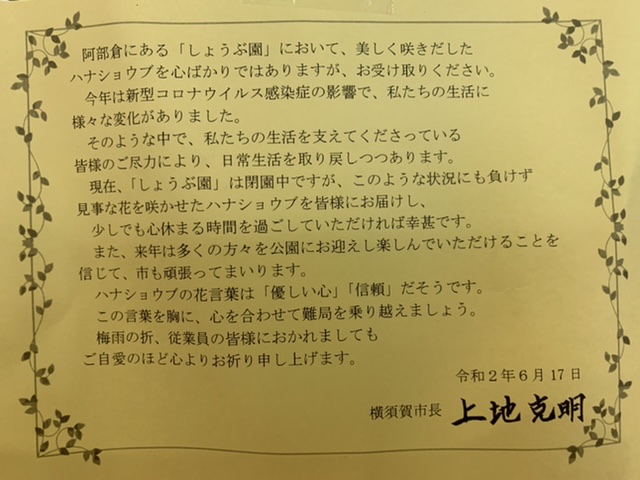 阿部倉にある「しょうぶ園」において、美しく咲きだした
ハナショウブを心ばかりではありますが、お受け取りください。
今年は新型コロナウイルス感染症の影響で、私たちの生活に
様々な変化がありました。
そのような中で、私たちの生活を支えてくださっている
皆様のご尽力により、日常生活を取り戻しつつあります。
現在、「しょうぶ園」は閉園中ですが、このような状況にも負けず
見事な花を咲かせたハナショウブを皆様にお届けし、
少しでも心休まる時間を過ごしていただければ幸甚です。
また、来年は多くの方々を公園にお迎えし楽しんでいただけることを
信じて、市も頑張ってまいります。
ハナショウブの花言葉は「優しい心」「信頼」だそうです。
この言葉を胸に、心を合わせて難局を乗り越えましょう。
梅雨の折、従業員の皆様におかれましても
ご自愛のほど心よりお祈り申し上げます。
令和2年6月17日
横須賀市長 上地克明